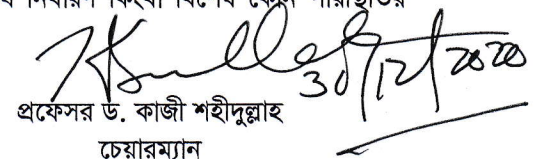 নির্ধারণ কিংবা বিশেষ কোন পরিস্থিতির
30/12/2020
প্রফেসর ড. কাজী শহীদুল্লাহ
চেয়ারম্যান